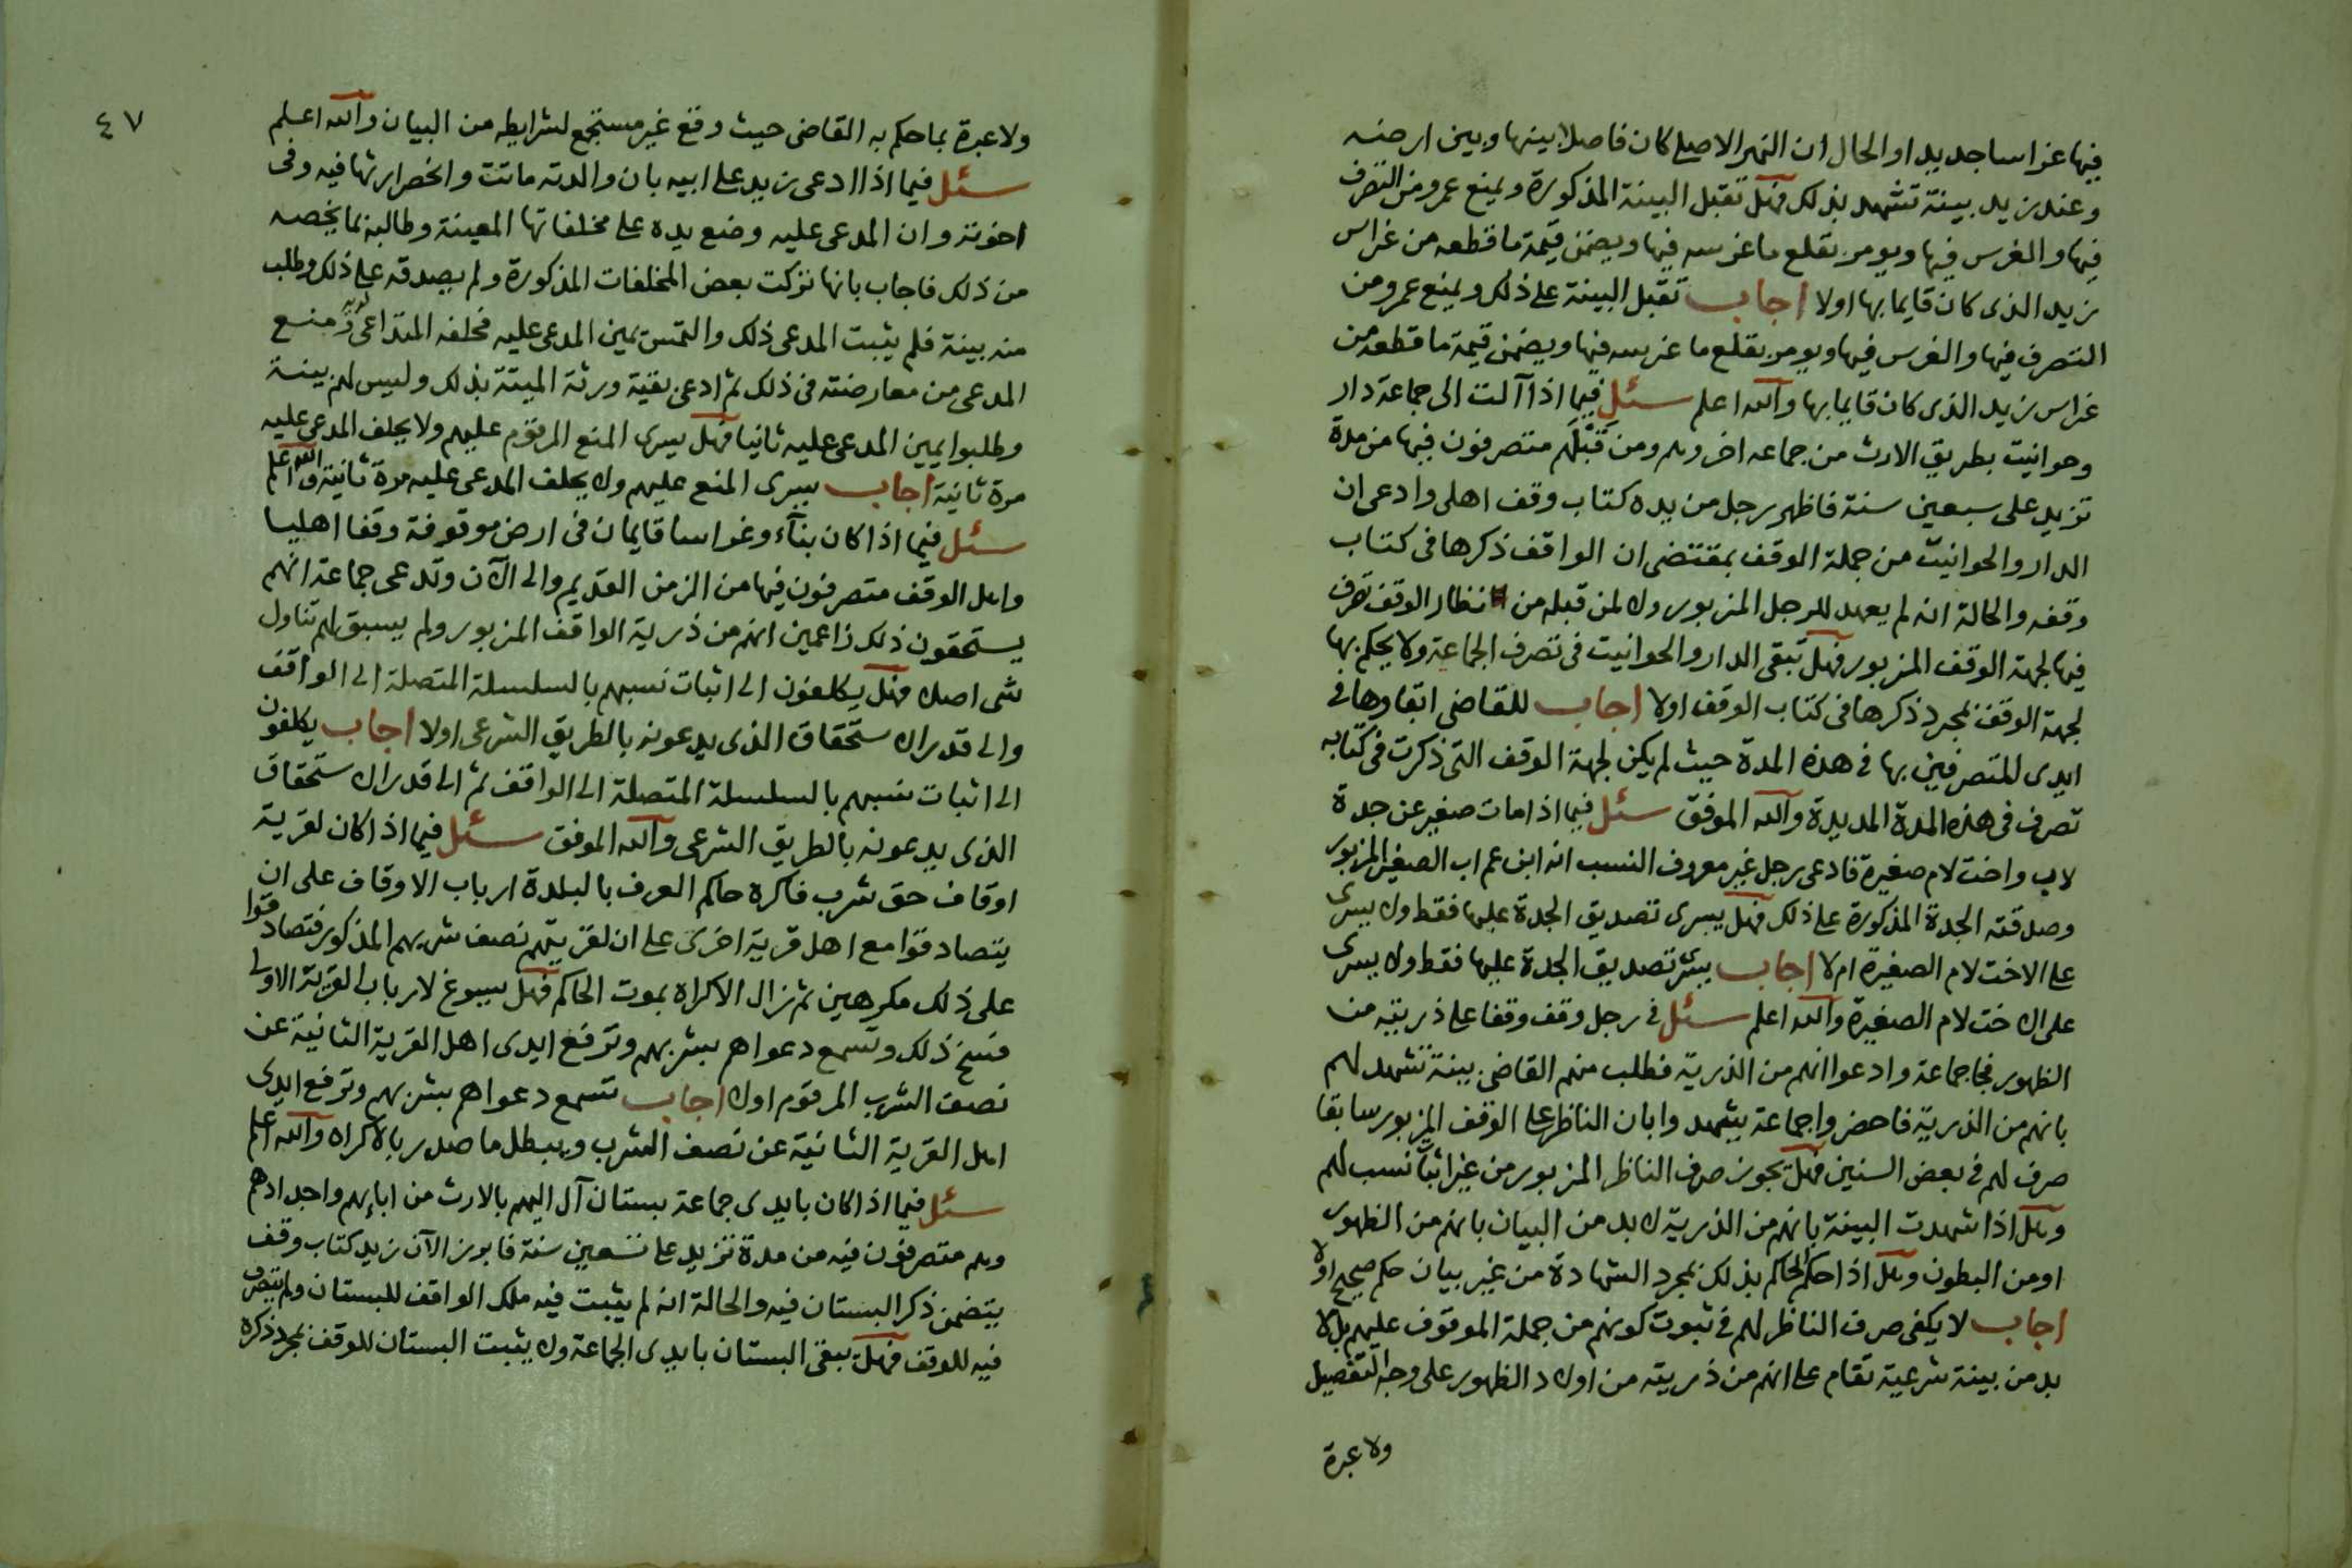 فيها غراسا جديدا والحال ان النهر الاصلي كان فاصلا بينها وبين ارضه
وعند زيد بينة تشهد بذلك فهل تقبل البينة المذكورة ويمنع عمرو من التصرف
فيها والغرس فيها ويومر بقلع ما غرسه فيها ويضمن قيمة ما قطعه من غراس
زيد الذي كان قايما بها اولا اجاب تقبل البينة على ذلك ويمنع عمرو من
التصرف فيها والغرس فيها ويومر بقلع ما غرسه فيها ويضمن قيمة ما قطعه من
غراس زيد الذي كان قايما بها والله اعلم سئل فيما اذا آلت الى جماعة دار
وحوانيت بطريق الارث من جماعه اخر وهم ومن قبلهم متصرفون فيها من مدة
تزيد على سبعين سنة فاظهر رجل من يده كتاب وقف اهلي وادعى ان
الدار والحوانيت من جملة الوقف بمقتضى ان الواقف ذكرها في كتاب
وقفه والحالة انه لم يعهد للرجل المزبور ولا لمن قبله من نظار الوقف تصرف
فيها لجهة الوقف المزبور فهل تبقى الدار والحوانيت في تصرف الجماعة ولا يحكم بها
لجهة الوقف بمجرد ذكرها في كتاب الوقف اولا اجاب للقاضي ابقاوها في
ايدي المتصرفين بها في هذه المدة حيث لم يكن لجهة الوقف التي ذكرت في كتابه
تصرف في هذه المدة المديدة والله الموفق سئل فيما اذا مات صغير عن جدة
لاب واخت لام صغيرة فادعى رجل غير معروف النسب انه ابن عم اب الصغير المزبور
وصدقته الجدة المذكورة على ذلك فهل يسرى تصديق الجدة عليها فقط ولا يسرى
على الاخت لام الصغيرة ام لا اجاب يسرى تصديق الجدة عليها فقط ولا يسرى
على الاخت لام الصغيرة والله اعلم سئل في رجل وقف وقفا على ذريته من
الظهور فجا جماعة وادعوا انهم من الذرية فطلب منهم القاضي بينة تشهد لهم
بانهم من الذرية فاحضروا جماعة يشهدوا بان الناظر على الوقف المزبور سابقا
صرف لهم في بعض السنين فهل يجوز صرف الناظر المزبور من غير اثبات نسب لهم
وهل اذا شهدت البينة بانهم من الذرية لا بد من البيان بانهم من الظهور
او من البطون وهل اذا حكم الحاكم بذلك بمجرد الشهادة من غير بيان حكم صحيح اولا
اجاب لا يكفي صرف الناظر لهم في ثبوت كونهم من جملة الموقوف عليهم بل لا
بد من بينة شرعية تقام على انهم من ذريته من اولاد الظهور على وجه التفصيل
ولا عبرة
٤٧
ولا عبرة بما حكم به القاضي حيث وقع غير مستجمع لشرايطه من البيان والله اعلم
سئل فيما اذا ادعى زيد على ابيه بان والدته ماتت وانحصر ارثها فيه وفي
اخوته وان المدعى عليه وضع يده على مخلفاتها المعينة وطالبه بما يخصه
من ذلك فاجاب بانها تركت بعض المخلفات المذكورة ولم يصدقه على ذلك وطلب
منه بينة فلم يثبت المدعي ذلك والتمس يمين المدعى عليه فحلفه المتداعى لديه ومنع
المدعي من معارضته في ذلك ثم ادعى بقية ورثة الميتة بذلك وليس لهم بينة
وطلبوا يمين المدعى عليه ثانيا فهل يسرى المنع المرقوم عليهم ولا يحلف المدعى عليه
مرة ثانية اجاب يسرى المنع عليهم ولا يحلف المدعى عليه مرة ثانية والله اعلم
سئل فيما اذا كان بناء وغراسا قايمان في ارض موقوفة وقفا اهليا
واهل الوقف متصرفون فيها من الزمن القديم والى الآن وتدعي جماعة انهم
يستحقون ذلك زاعمين انهم من ذرية الواقف المزبور ولم يسبق لهم تناول
شي اصلا فهل يكلفون الى اثبات نسبهم بالسلسلة المتصلة الى الواقف
والى قدر الاستحقاق الذي يدعونه بالطريق الشرعي اولا اجاب يكلفون
الى اثبات نسبهم بالسلسلة المتصلة الى الواقف ثم الى قدر الاستحقاق
الذي يدعونه بالطريق الشرعي والله الموفق سئل فيما اذا كان لقرية
اوقاف حق شرب فاكره حاكم العرف بالبلدة ارباب الاوقاف على ان
يتصادقوا مع اهل قرية اخرى على ان لقريتهم نصف شربهم المذكور فتصادقوا
على ذلك مكرهين ثم زال الاكراه بموت الحاكم فهل يسوغ لارباب القرية الاولى
فسخ ذلك وتسمع دعواهم بشربهم وترفع ايدي اهل القرية الثانية عن
نصف الشرب المرقوم اولا اجاب تسمع دعواهم بشربهم وترفع ايدي
اهل القرية الثانية عن نصف الشرب ويبطل ما صدر بالاكراه والله اعلم
سئل فيما اذا كان بايدي جماعة بستان آل اليهم بالارث من ابايهم واجدادهم
وهم متصرفون فيه من مدة تزيد على تسعين سنة فابرز الآن زيد كتاب وقف
يتضمن ذكر البستان فيه والحالة انه لم يثبت فيه ملك الواقف للبستان ولم يتصرف
فيه للوقف فهل يبقى البستان بايدي الجماعة ولا يثبت البستان للوقف بمجرد ذكره